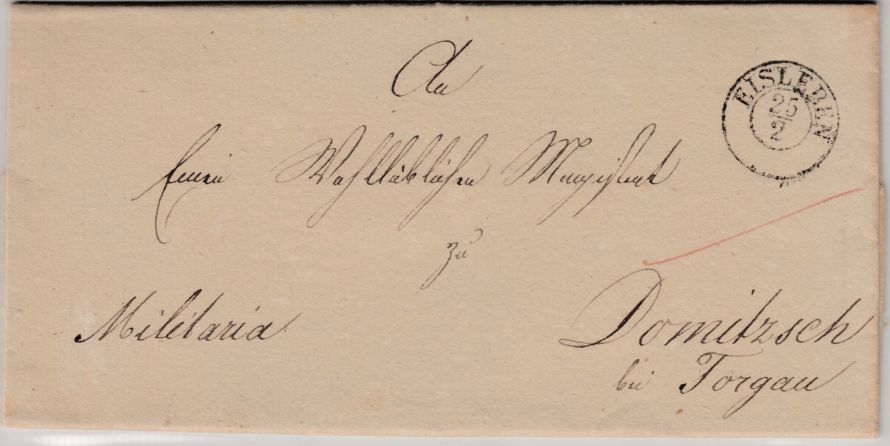 An
Einen Wohllöblichen Magistrat
zu
Militaria
Domitzsch
bei Torgau
EISLEBEN
25/2